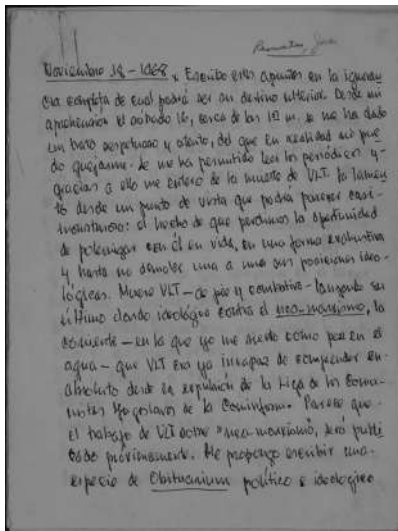 Revueltas, José
Noviembre 18-1968. Escribo estos apuntes en la ignoran
cia completa de cual podrá ser mi destino ulterior. Desde mi
aprehensión el sábado 16, cerca de las 12 m. se me ha dado
un trato respetuoso y atento, del que en realidad no pue
do quejarme. Se me ha permitido leer los periódicos y
gracias a ello me entero de la muerte de VLT. La lamen
to desde un punto de vista que podría parecer casi
monstruoso: el hecho de que perdimos la oportunidad
de polemizar con él en vida, en una forma exhaustiva
y hasta no demoler una a una sus posiciones ideo-
lógicas. Muere VLT—de pie y combativo—lanzando su
último dardo ideológico contra el neo-marxismo, la
corriente—en la que yo me siento como pez en el
agua—que VLT era ya incapaz de comprender en
absoluto desde la expulsión de la Liga de los Comu-
nistas Yugoslavos de la Cominform. Parece que
el trabajo de VLT sobre "neo-marxismo", será publi
cado próximamente. Me propongo escribir una
especie de Obituarium político e ideológico